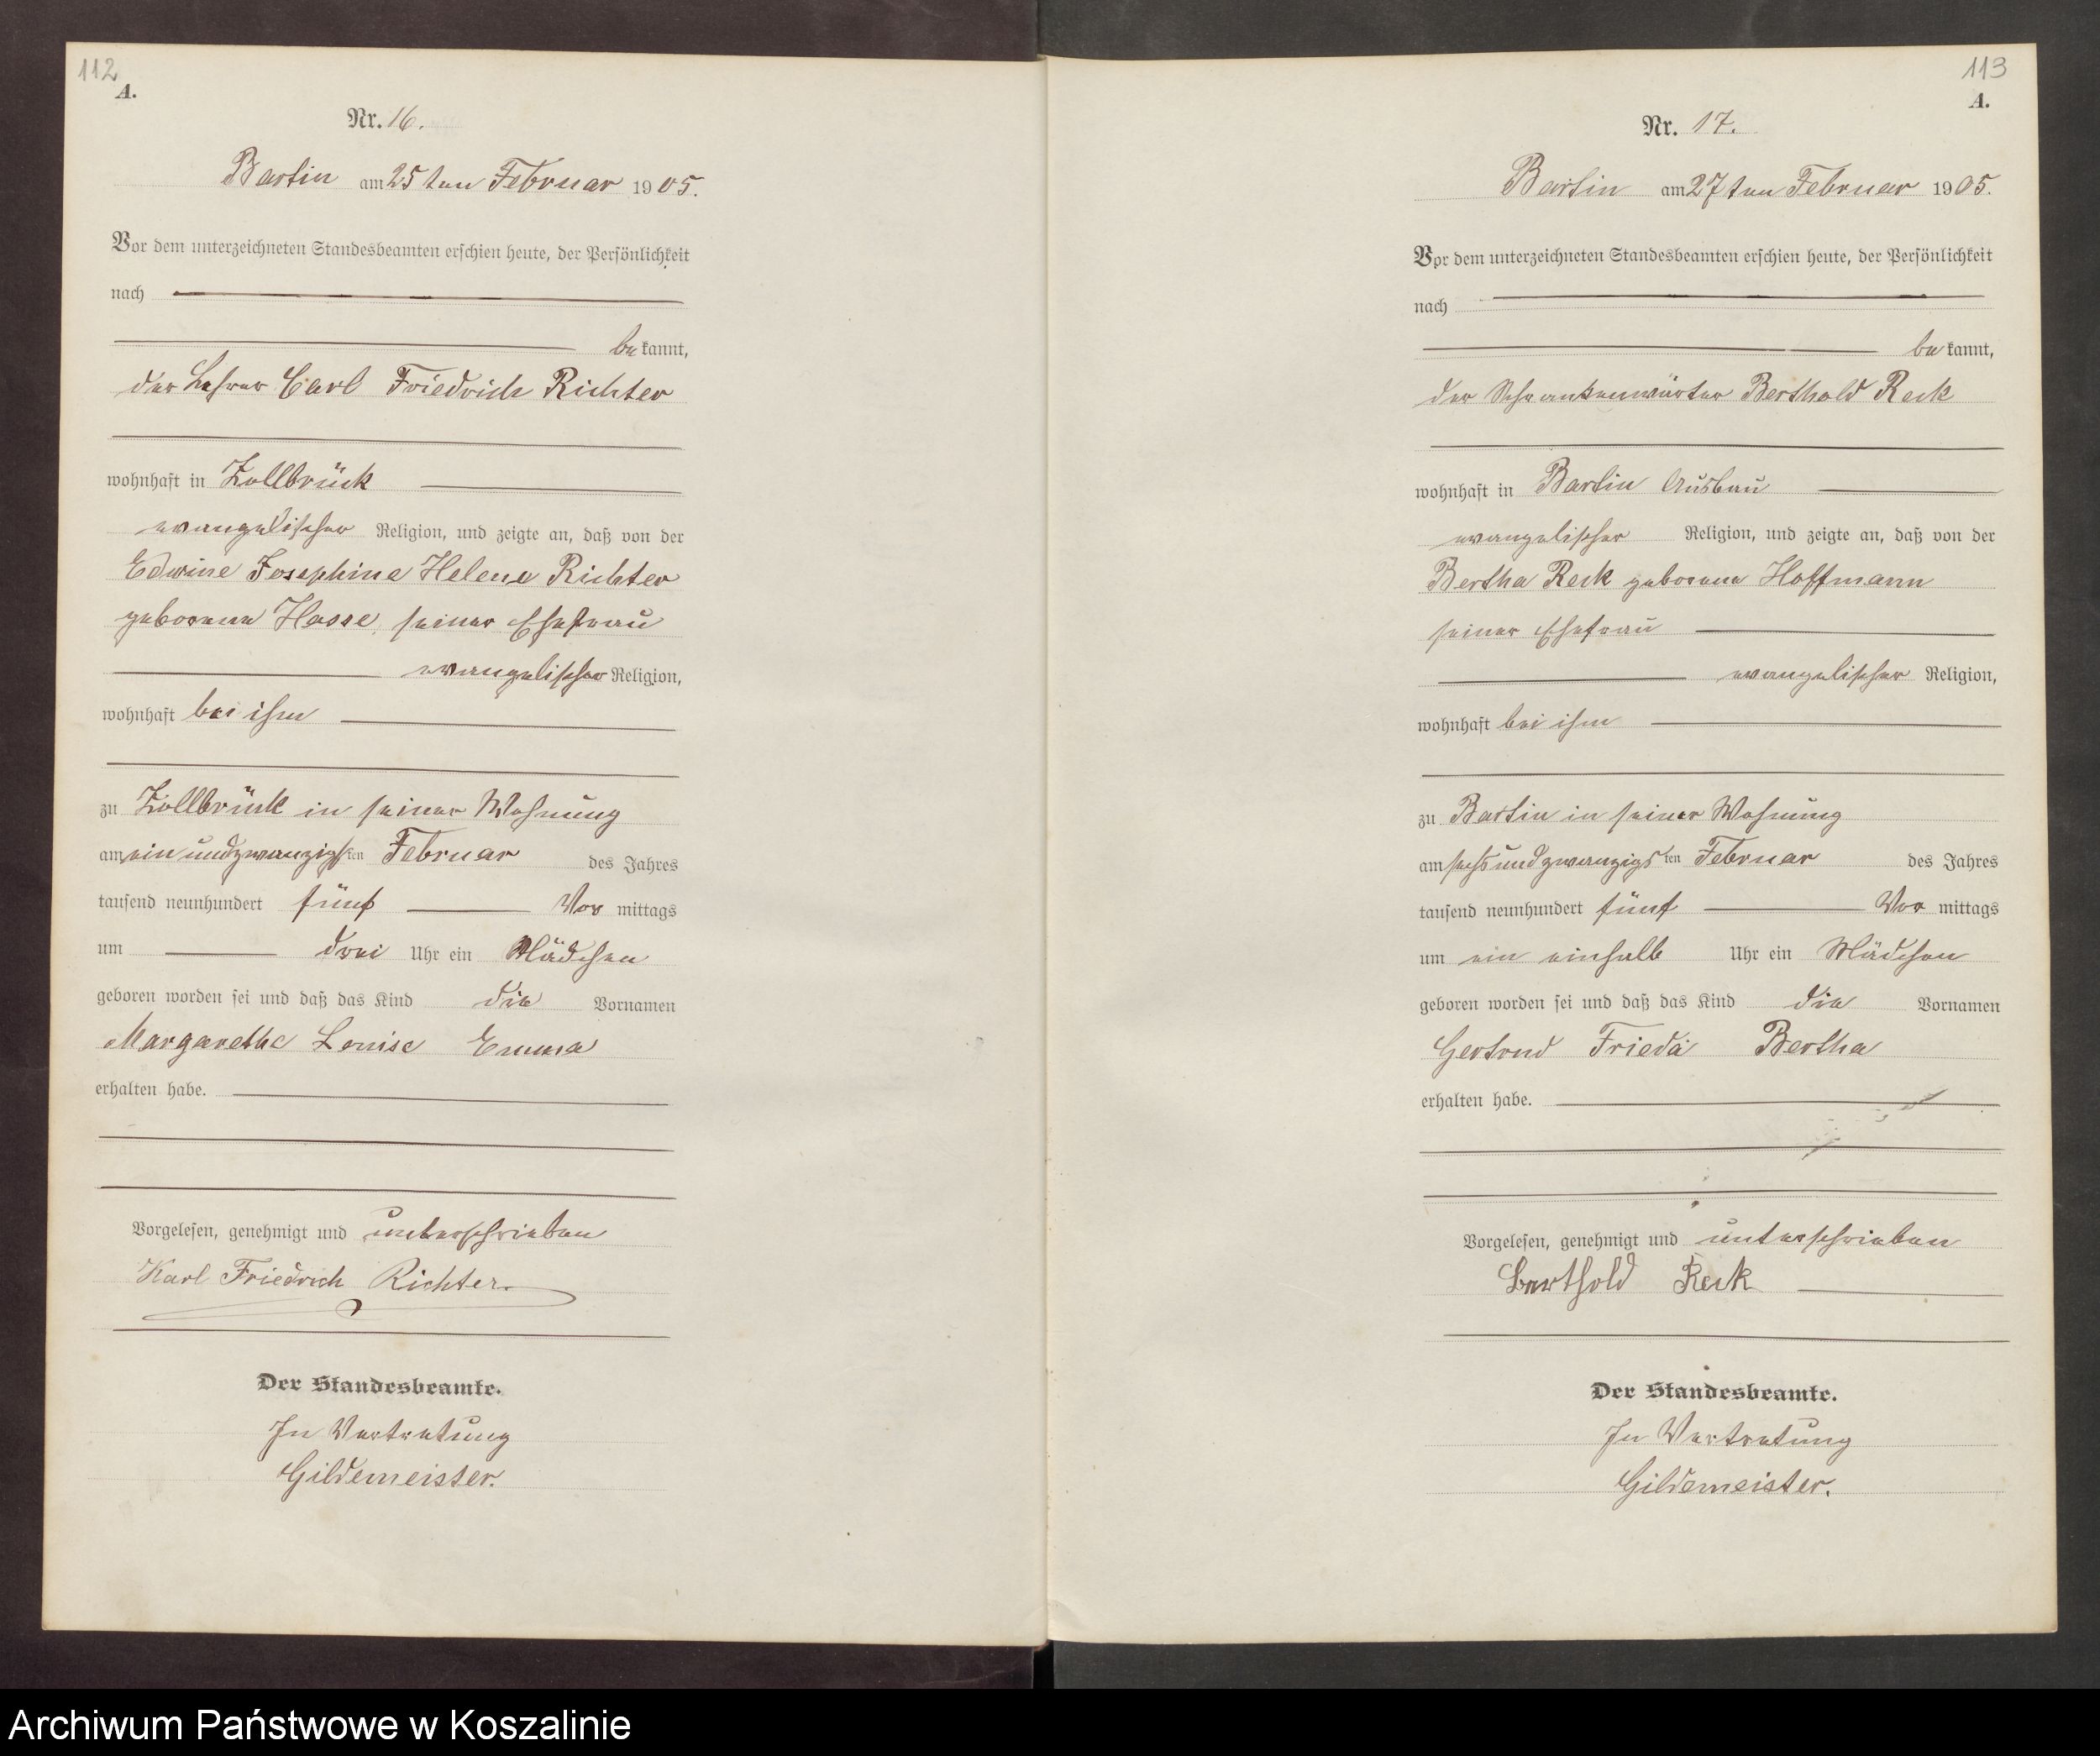 112
A.
Nr. 16.
Bartin am 25ten Februar 1905.
Vor dem unterzeichneten Standesbeamten erschien heute, der Persönlichkeit
nach
bekannt,
der Lehrer Carl Friedrich Richter
wohnhaft in Zollbrück
evangelischer Religion, und zeigte an, daß von der
Edwine Josephine Helene Richter
geborene Hasse, seiner Ehefrau
evangelischer Religion,
wohnhaft bei ihm
zu Zollbrück in seiner Wohnung
am einundzwanzigsten Februar des Jahres
tausend neunhundert fünf Vor mittags
um drei Uhr ein Mädchen
geboren worden sei und daß das Kind die Vornamen
Margarethe Louise Emma
erhalten habe.
Vorgelesen, genehmigt und unterschrieben
Karl Friedrich Richter.
Der Standesbeamte.
In Vertretung
Gildemeister.
113
A.
Nr. 17.
Bartin am 27ten Februar 1905.
Vor dem unterzeichneten Standesbeamten erschien heute, der Persönlichkeit
nach
bekannt,
der Schrankenwärter Berthold Reck
wohnhaft in Bartin Ausbau
evangelischer Religion, und zeigte an, daß von der
Bertha Reck geborene Hoffmann
seiner Ehefrau
evangelischer Religion,
wohnhaft bei ihm
zu Bartin in seiner Wohnung
am sechsundzwanzigsten Februar des Jahres
tausend neunhundert fünf Vor mittags
um ein einhalb Uhr ein Mädchen
geboren worden sei und daß das Kind die Vornamen
Gertrud Frieda Bertha
erhalten habe.
Vorgelesen, genehmigt und unterschrieben
Berthold Reck
Der Standesbeamte.
In Vertretung
Gildemeister.
Archiwum Państwowe w Koszalinie